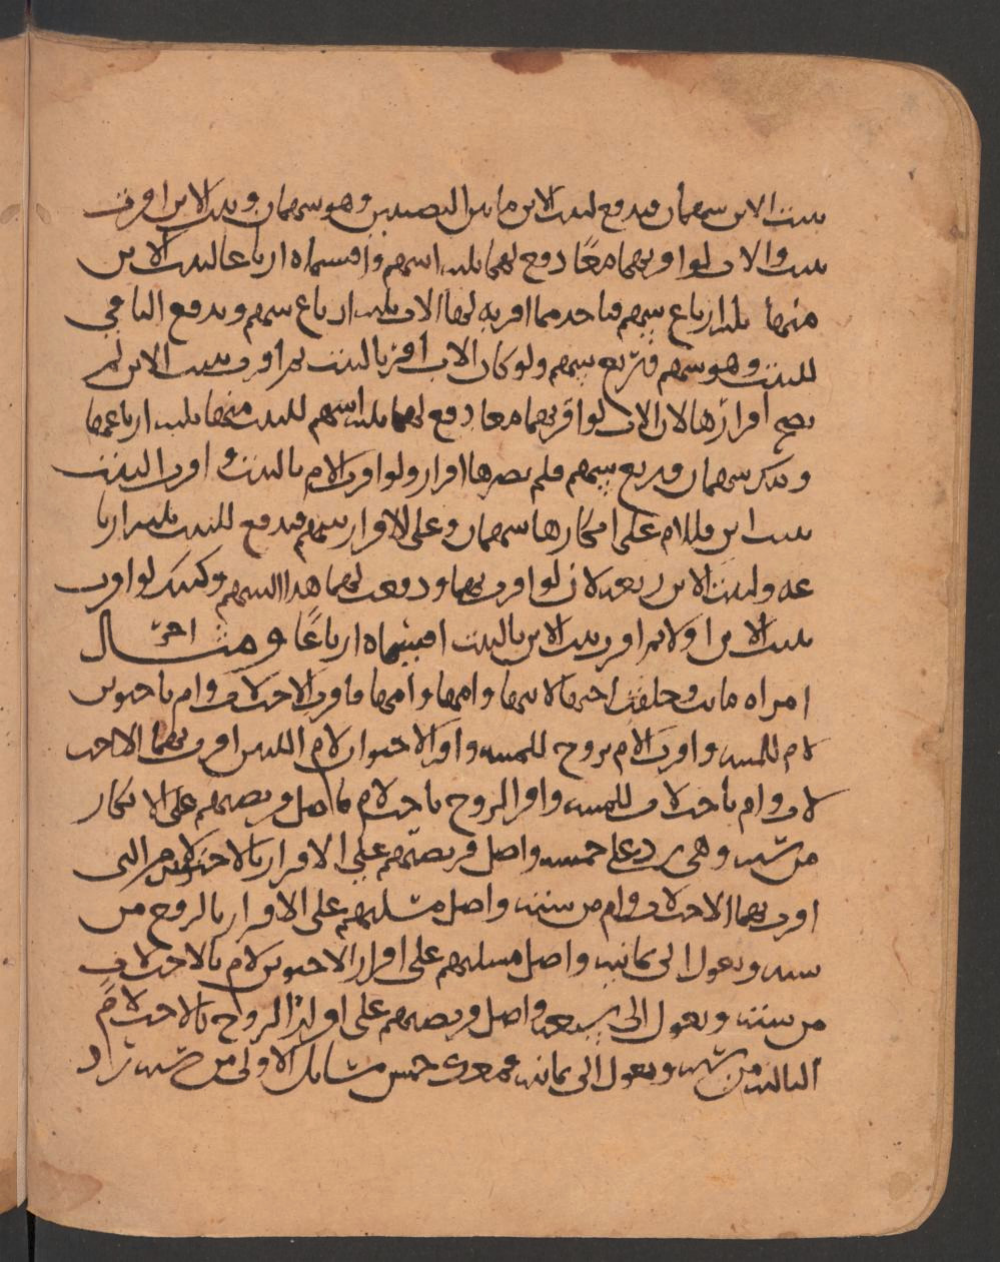 بنت الابن سهمان فيدفع لبنت الابن ما بين النصيبين وهو سهمان وبنت الابن اقرت
بنت والاب لو اقر بهما معًا دفع لهما ثلثة اسهم واقتسماه ارباعا لبنت الابن
منها ثلثة ارباع سهم فتاخد مما اقر به لها الاب ثلثة ارباع سهم ويدفع الباقي
للبنت وهو سهم وربع سهم ولو كان الاب اقر بالبنت ثم اقر ببنت الابن لم
يصح اقرارها لان الاب لو اقر بهما معا دفع لهما ثلثة اسهم للبنت منها ثلثة ارباعها
وذلك سهمان وربع سهم فلم يضرها اقراره ولو اقرت الام بالبنت واقرت البنت
ببنت ابن فللام على انكارها سهمان وعلى الاقرار سهم فيدفع للبنت ثلثة اربا
عه ولبنت الابن ربعه لان لو اقرت بهما ودفعت لهما هدا السهم وكذلك لو اقرت
ببنت الابن اولا ثم اقرت بنت الابن بالبنت اقتسماه ارباعًا ومثال اخر
امراه ماتت وخلفت اختها لابيها وامها وامها فاقرت الاخت لاب وام باخوين
لام للميتة واقرت الام بزوج للميتة واقر الاخوان لام اللدين اقرت بهما الاخت
لاب وام باخت لاب للميتة واقر الزوج باخت لام فاصل فريضتهم على الانكار
من ستة وهي ترد على خمسة واصل فريضتهم على الاقرار بالاخوين لام التى
اقرت بهما الاخت لاب وام من ستة واصل مسلتهم على الاقرار بالزوج من
ستة وتعول الى ثمانية واصل مسلتهم على اقرار الاخوين لام بالاخت لاب
من ستة وتعول الى سبعة واصل فريضتهم على اقرار الزوج بالاخت لام
الثالثة من ستة وتعول الى ثمانية فمعك خمس مسايل الاولى من ستة ترد